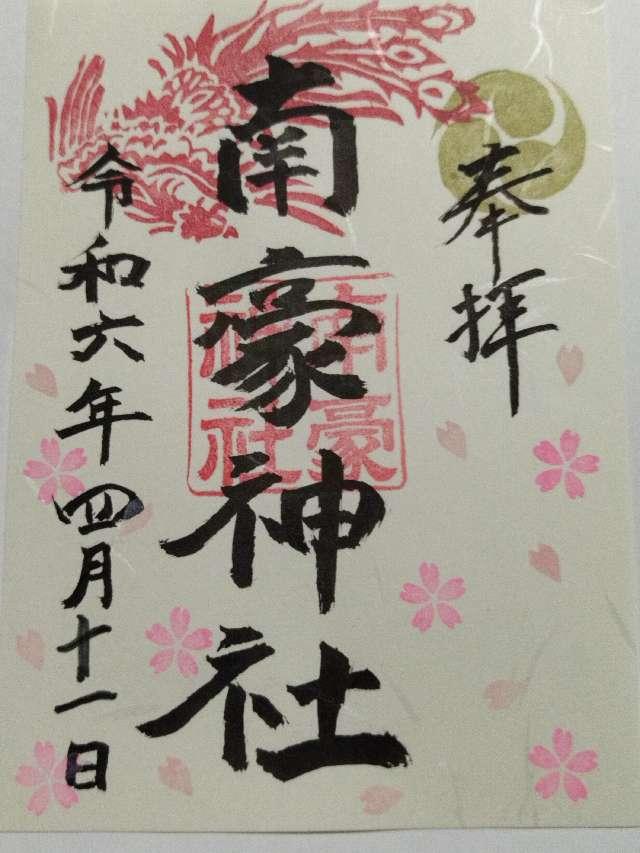 奉拝
南豪神社
南豪神社
令和六年四月十一日